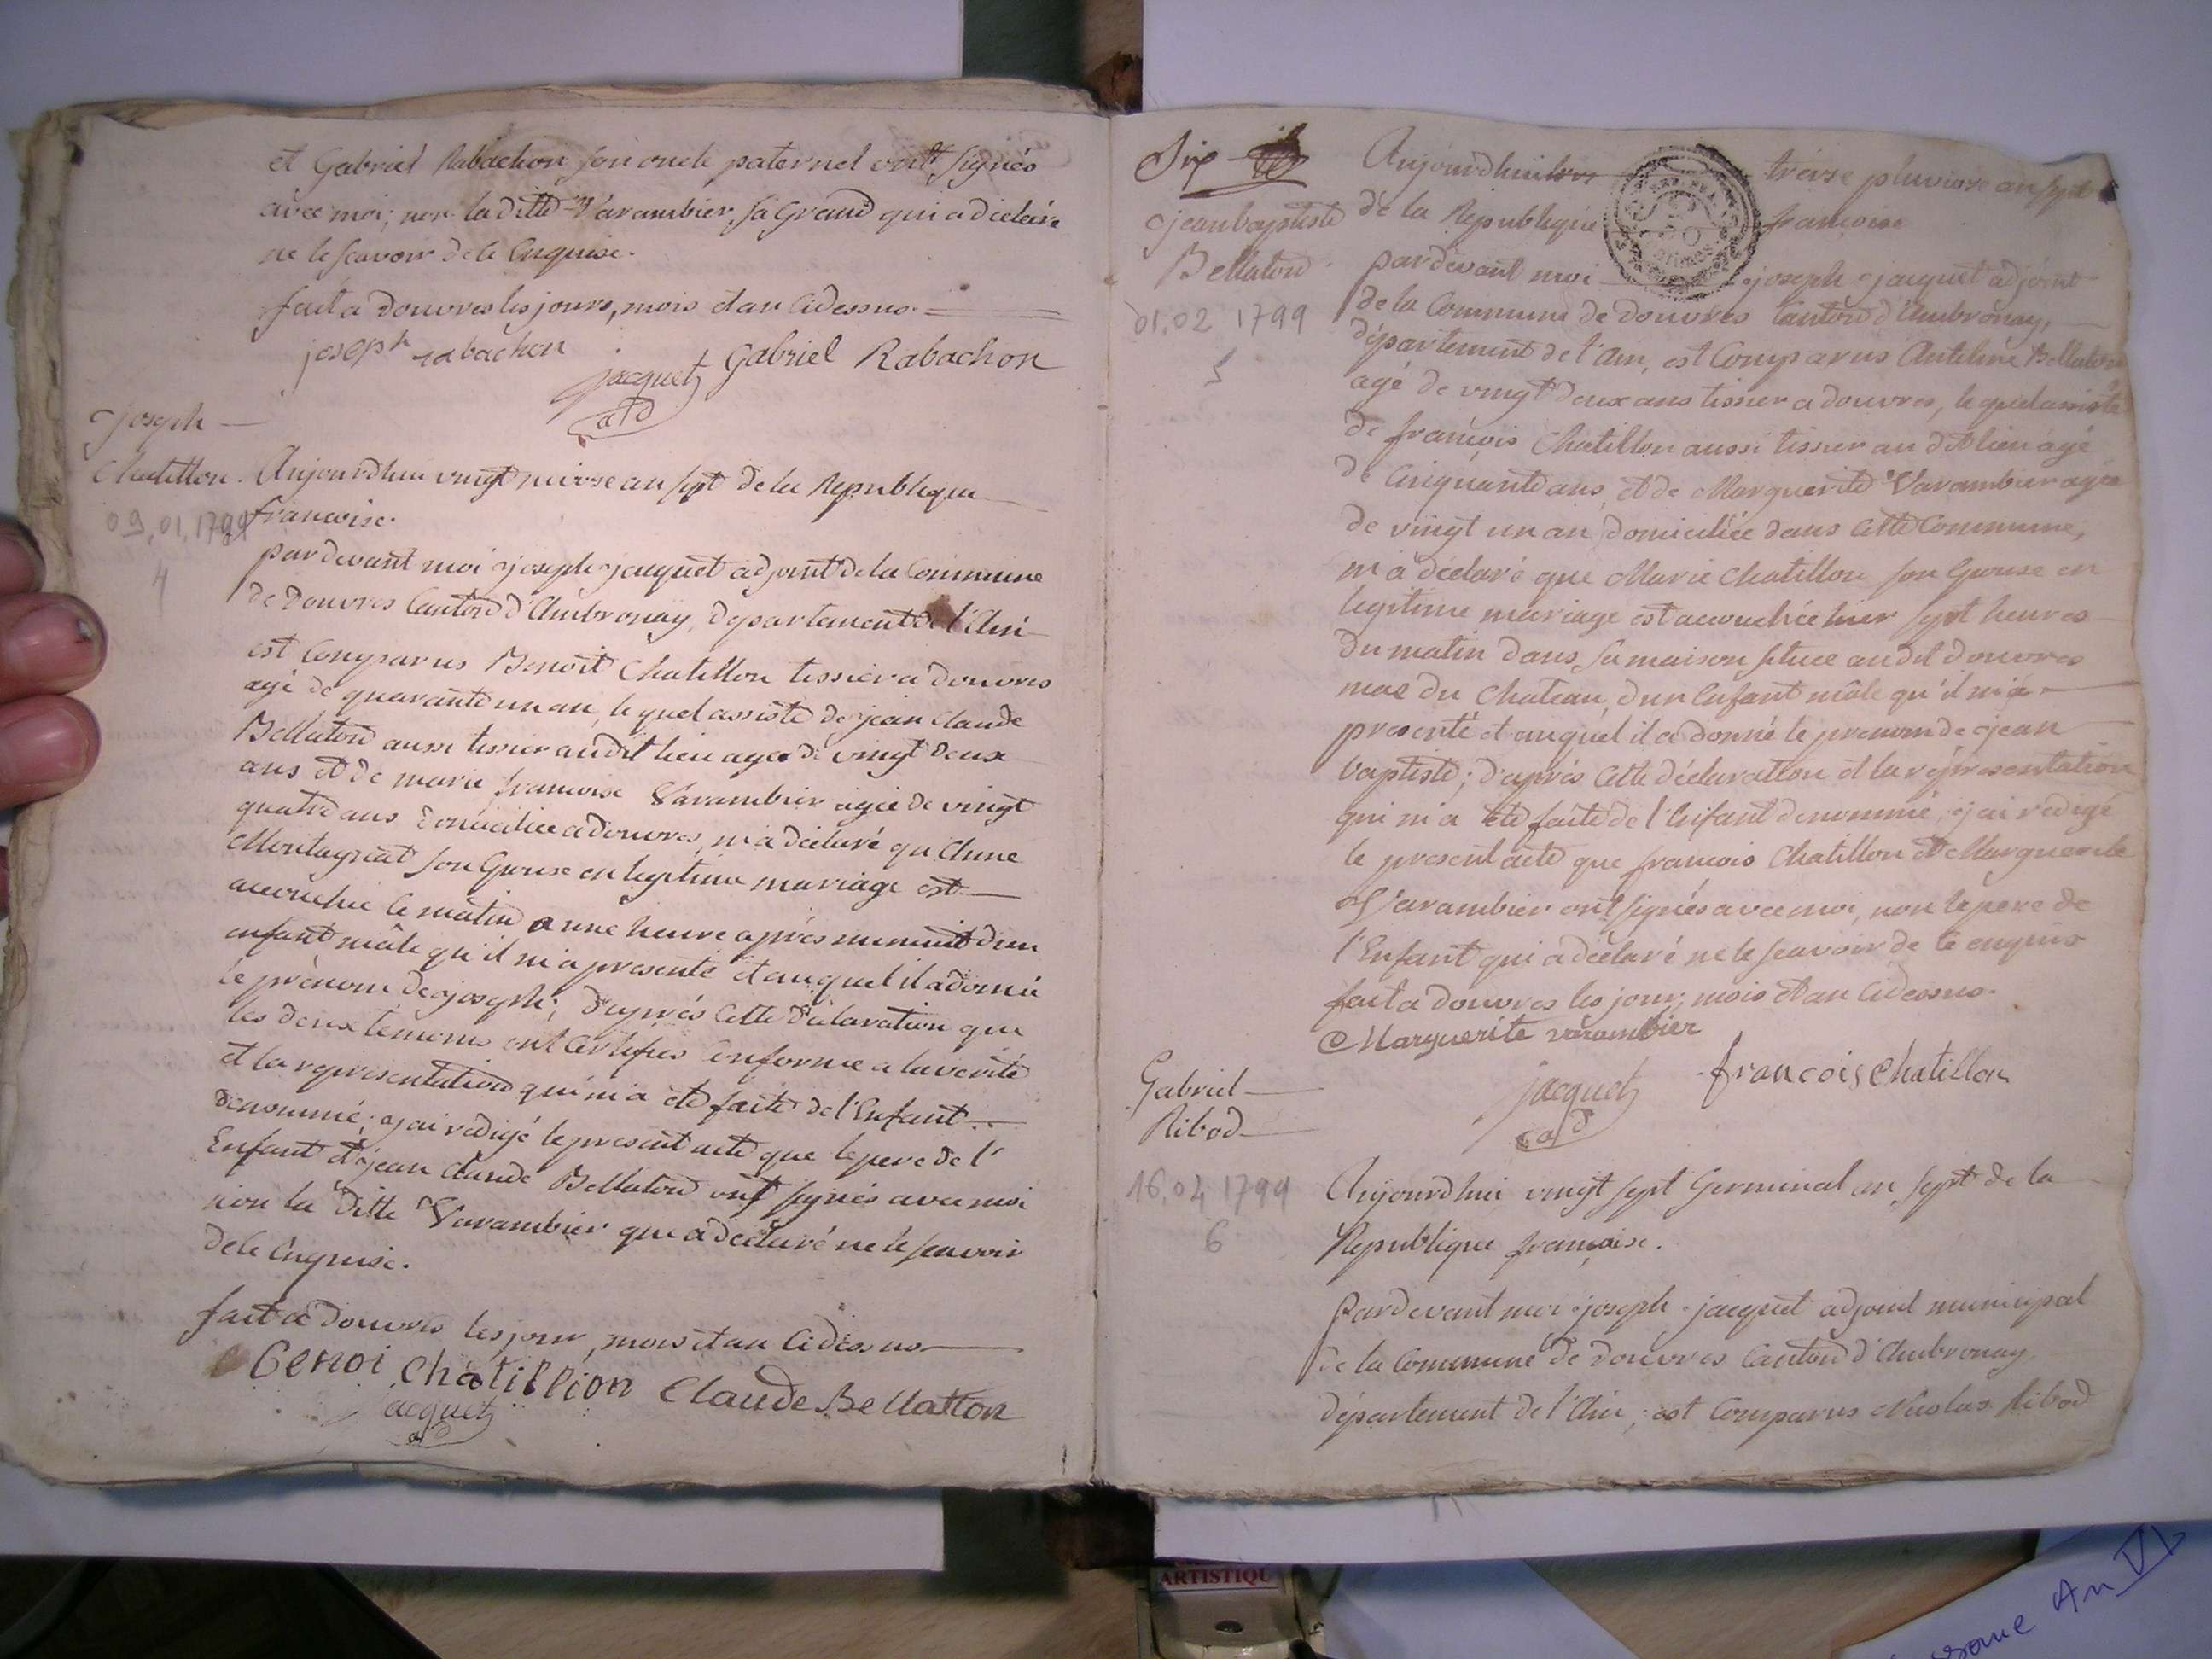 et Gabriel Rabachon son oncle paternel ont signés
avec moi; non la ditte Varambier, sa Grand qui a déclaré
ne le scavoir de le Enquise.
fait a douvres les jours, mois et an cidessus. =
joseph rabachon
jacquet Gabriel Rabachon
ad
Joseph
Chatillon.
09,01,1799
4
Aujourdhui vingt nivose an sept de la Republique
francoise.
pardevant moi joseph jacquet adjoint de la Commune
de Douvres Canton d'Ambronay, departement de l'Ain
est Comparus Benoit Chatillon tissier a douvres
agé de quarante un an, lequel assisté de jean Claude
Bellaton aussi tissier audit lieu agee de vingt deux
ans et de marie francoise Varambier agée de vingt
quatre ans domiciliée a douvres, m'a déclaré qu'Anne
Montagnat son Epouse en legitime mariage est
accouchée ce matin a une heure après minuit d'un
enfant mâle qu'il m'a presenté et auquel il a donné
le prénom de joseph; d'après Cette déclaration que
les deux temoins ont Certifiés Conforme a la verité
et la representation qui m'a été faite de l'Enfant
denommé; j'ai redigé le present acte que le pere de l'
Enfant et jean Claude Bellaton ont signés avec moi
non la ditte Varambier que a déclaré ne le scavoir
de le Enquise.
fait a Douvres les jour, mois et an cidessus
Benoi chatillion Claude Bellatton
jacquet
ad
Six
jean baptiste
Bellaton
01.02 1799
5
Aujourdhui treize pluviose an sept
de la Republique francoise
pardevant moi joseph jacquet adjoint
de la Commune de Douvres Canton d'Ambronay,
département de l'Ain, est Comparus Antelme Bellaton
agé de vingt deux ans tissier a douvres, lequel assisté
de françois Chatillon aussi tissier au dit lieu agé
de Cinquante ans, et de Marguerite Varambier agée
de vingt un an, domiciliée dans Cette Commune,
m'a déclaré que Marie Chatillon son Epouse en
legitime mariage est accouchée hier sept heures
du matin dans sa maison située audit douvres
mas du Chateau, d'un Enfant mâle qu'il m'a
presenté et auquel il a donné le prenom de jean
baptiste; d'après Cette déclaration et la representation
qui m'a été faite de l'Enfant denommé, j'ai redigé
le present acte que francois Chatillon et Marguerite
Varambier ont signés avec moi, non le pere de
l'Enfant qui a déclaré ne le scavoir de le enquis
fait a douvres les jour, mois et an cidessus.
Marguerite varambier
jacquet francois chatillon
ad
Gabriel
Ribod
16,04 1799
6
Aujourdhui vingt sept Germinal an sept de la
Republique françoise.
Pardevant moi joseph jacquet adjoint municipal
de la Commune de Douvres Canton d'Ambronay
département de l'Ain, est Comparus Nicolas Ribod
ARTISTIQU
An VI